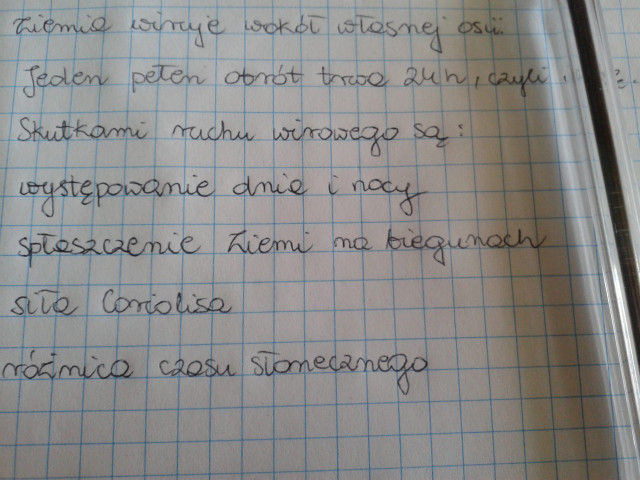 Ziemia wiruje wokół własnej osi.
Jeden pełen obrót trwa 24h, czyli
Skutkami ruchu wirowego są:
występowanie dnia i nocy
spłaszczenie Ziemi na biegunach
siła Coriolisa
różnica czasu słonecznego